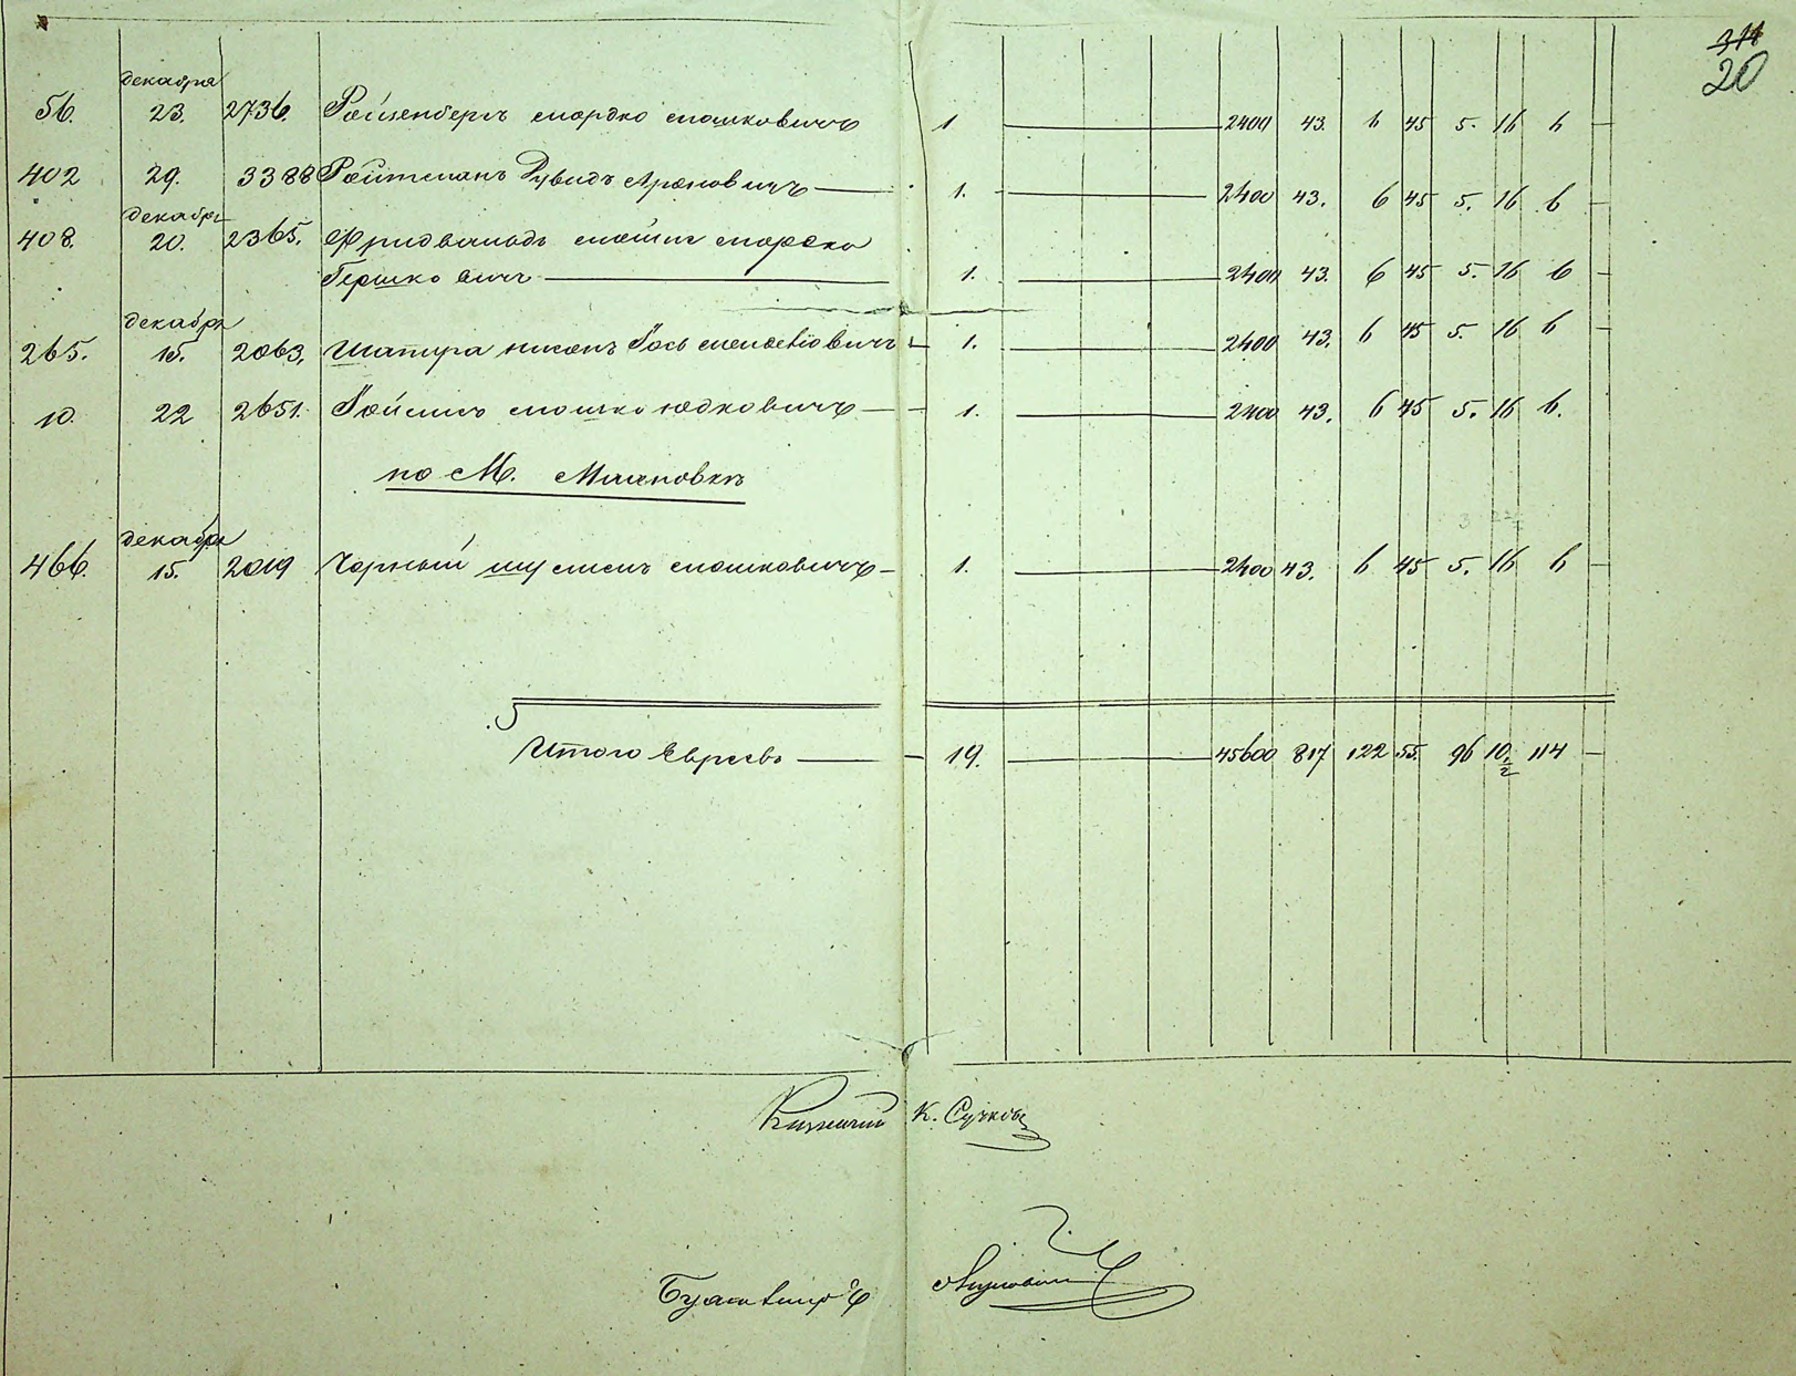 311
20
декабря
56. 23. 2736. Ройзенбергъ Мордко Мошковичъ 1. 2400 43. 6 45 5. 16 6 —
402 29. 3388 Ройтманъ Дувидъ Ароновичъ — 1. 2400 43. 6 45 5. 16 6 —
декабря
408. 20. 2365. Фридвальдъ Мойше Мордко
Гершковичъ — 1. 2400 43. 6 45 5. 16 6 —
декабря
265. 15. 2063. Шапира Нисонъ Іось 1. 2400 43. 6 45 5. 16 6 —
10. 22 2651. Мошко Юдковичъ — 1. 2400 43. 6 45 5. 16 6.
по М.
декабря
466. 15. 2019 Чорный Мошковичъ — 1. 2400 43. 6 45 5. 16 6 —
Итого Евреевъ — 19. 45600 817 122 55. 96 10 1/2 114 —
К. Сучковъ
Бухгалтеръ